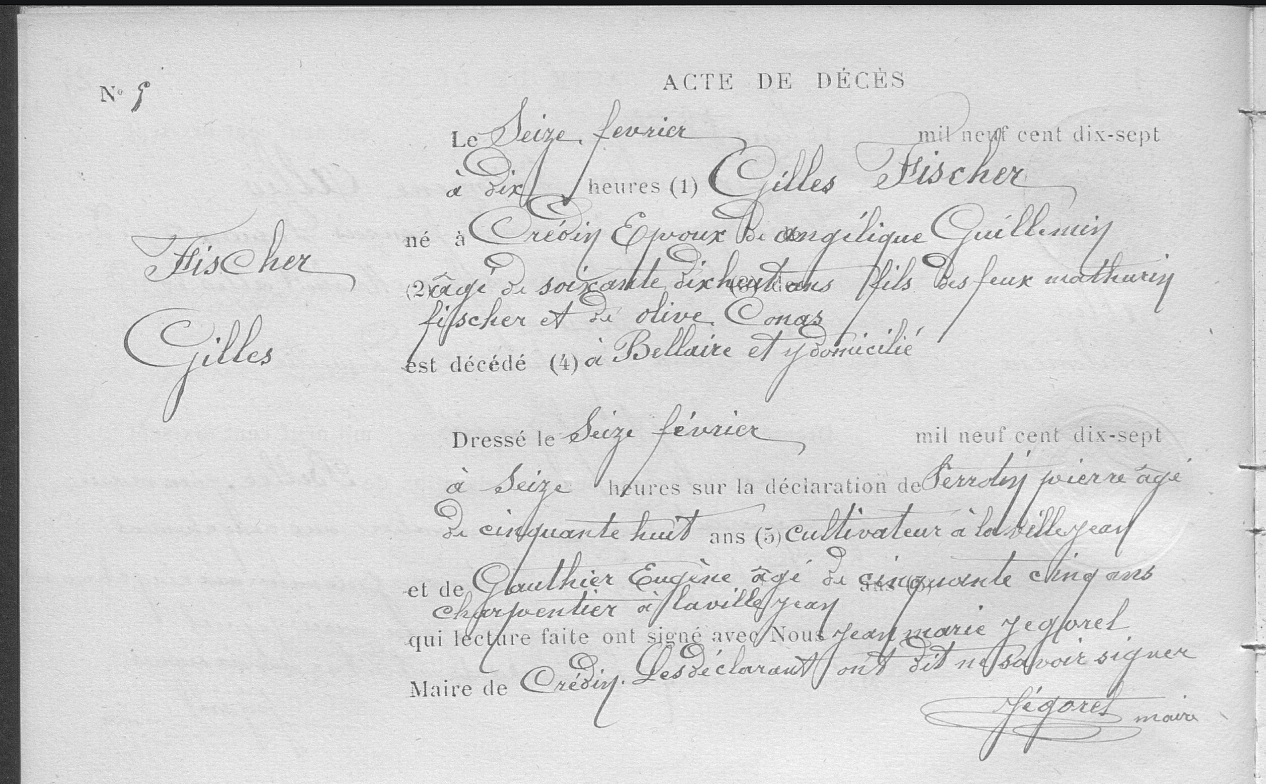 ACTE DE DÉCÈS
N° 5
Le Seize fevrier mil neuf cent dix-sept
à dix heures (1) Gilles Fischer
né à Crédin Epoux de angélique Guillemin
Fischer
(2) âgé de soixante dix huit ans fils des feux mathurin
fischer et de olive Conas
Gilles
est décédé (4) à Bellaire et y domicilié
Dressé le Seize février mil neuf cent dix-sept
à Seize heures sur la déclaration de Perrotin pierre âgé
de cinquante huit ans (5) cultivateur à la ville jean
et de Gauthier Eugène âgé de cinquante cinq ans
charpentier à laville jean
qui lecture faite ont signé avec Nous jean marie jegorel
Maire de Crédin. Les déclarant ont dit ne savoir signer
Jégorel maire